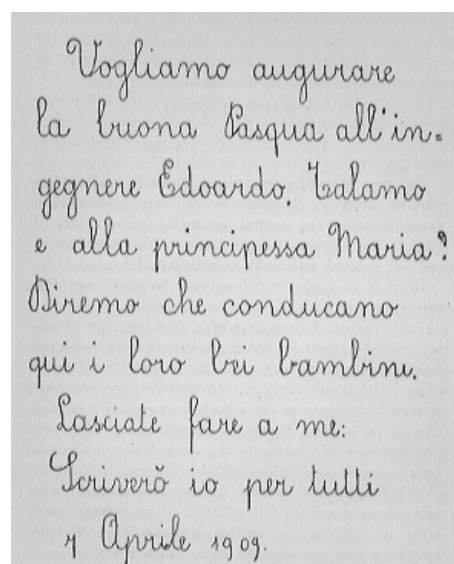 Vogliamo augurare
la buona Pasqua all'in=
gegnere Edoardo. Talamo
e alla principessa Maria?
Diremo che conducano
qui i loro bei bambini.
Lasciate fare a me:
Scriverò io per tutti
7 Aprile 1909.